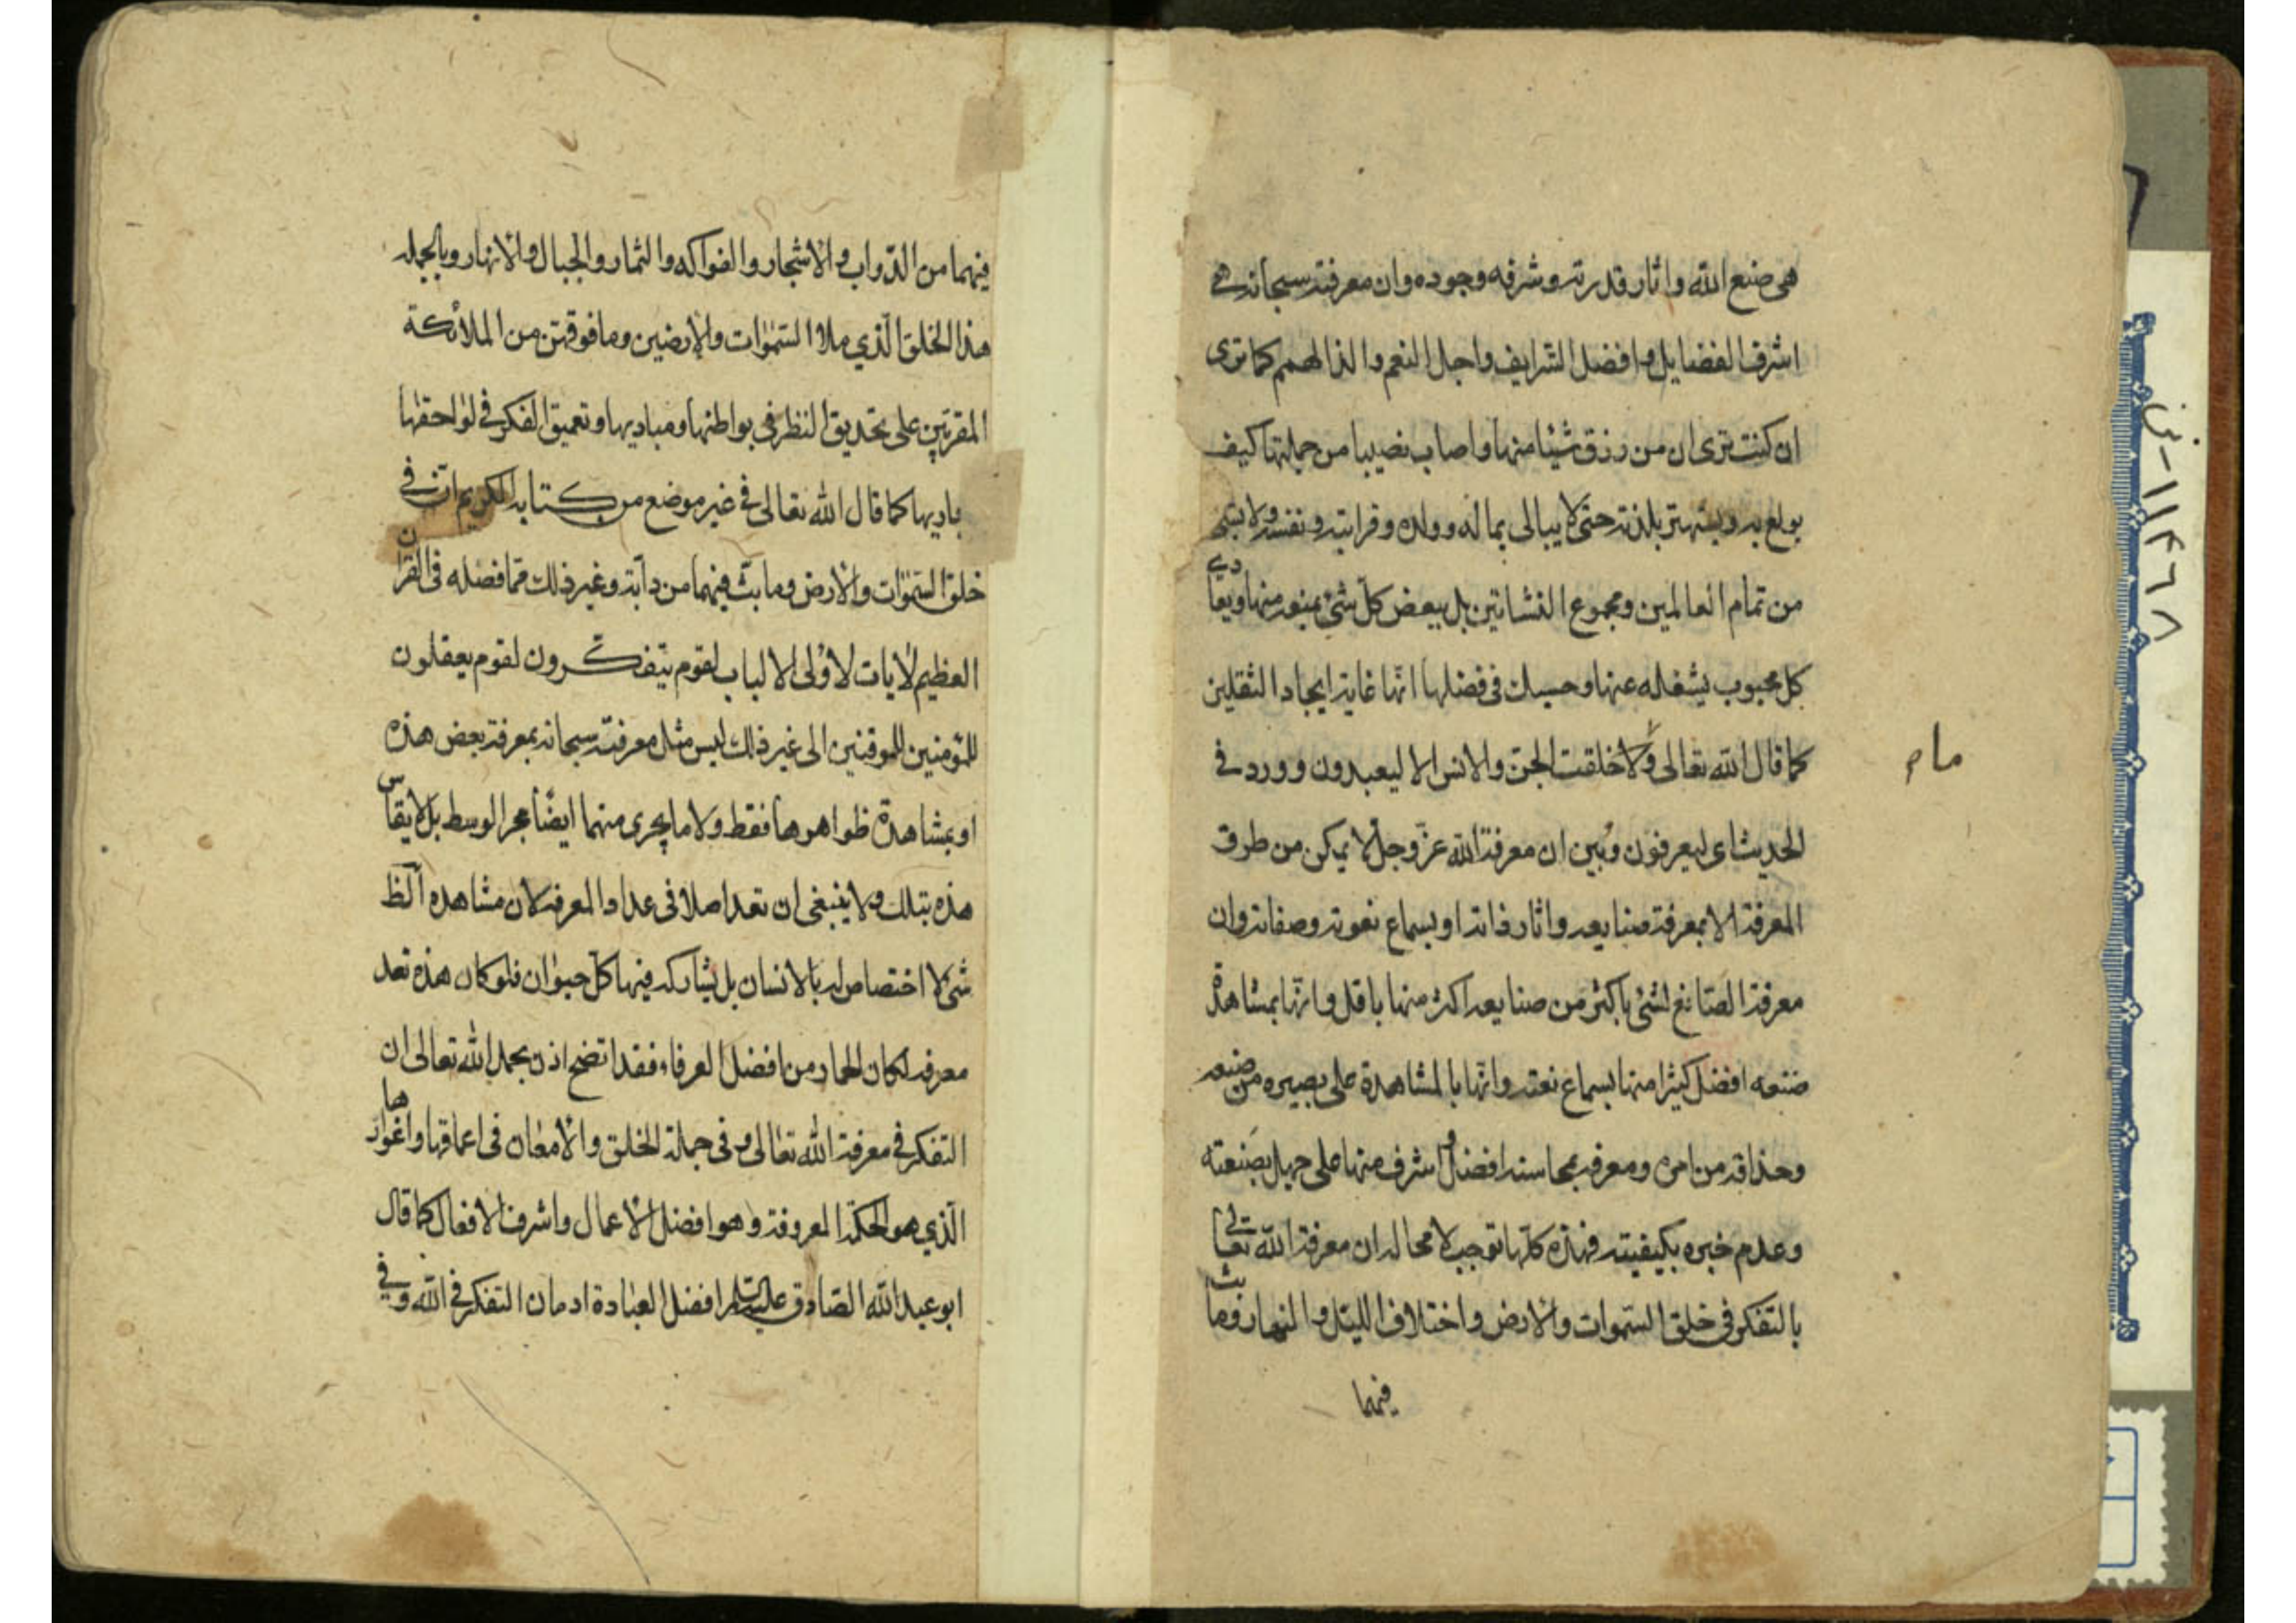 هى صنع الله واثار قدرته وشرفه وجوده وان معرفته سبحانه هى
اشرف الفضايل وافضل الشرايف واجل النعم والذ الهمم كما ترى
ان كنت ترى ان من رزق شيئا منها واصاب نصيبا من جملتها كيف
يولع به ويشتهتر بلذته حتى لا يبالى بماله وولده وقرابته ونفسه ولا يشتهى
من تمام العالمين ومجموع النشاتين بل يبغض كل شئ يمنعه منها ويعادى
كل محبوب يشغله عنها وحسبك فى فضلها انها غاية ايجاد الثقلين
كما قال الله تعالى وما خلقت الجن والانس الا ليعبدون وورد فى
ما م
الحديث اى ليعرفون وبين ان معرفة الله عز وجل لا يمكن من طرق
المعرفة الا بمعرفة صنايعه واثار ذاته او بسماع نعوته وصفاته وان
معرفة الصانع لشئ باكثر من صنايعه اكثر منها باقل وانها بمشاهدة
صنعه افضل كثيرا منها بسماع نعته وانها بالمشاهدة على بصيره من صنعه
وحذاقه من امره ومعرفه بمحاسنه افضل واشرف منها على جهل بصنعته
وعدم خبره بكيفيته فهذه كلها توجب لا محاله ان معرفة الله تعالى
بالتفكر فى خلق السموات والارض واختلاف الليل والنهار وما بث
فيهما
فيهما من الدواب والاشجار والفواكه والثمار والجبال والانهار وبالجمله
هذا الخلق الذي ملا السموات والارضين وما فوقهن من الملائكة
المقربين على تحديق النظر فى بواطنها ومباديها وتعميق الفكر فى لواحقها
باديها كما قال الله تعالى فى غير موضع من كتابه الكريم ان فى
خلق السموات والارض وما بث فيهما من دابة وغير ذلك مما فصله فى القران
العظيم لايات لاولى الالباب لقوم يتفكرون لقوم يعقلون
للمؤمنين للموقنين الى غير ذلك ليس مثل معرفته سبحانه بمعرفة بعض هذه
او بمشاهدة ظواهرها فقط ولا ما يجرى منهما ايضا مجر الوسط بل لا يقاس
هذه بتلك ولا ينبغى ان تعد اصلا فى عداد المعرفه لان مشاهده الظ
شئ لا اختصاص له بالانسان بل يشاركه فيها كل حيوان فلو كان هذه تعد
معرفه لكان الحمار من افضل العرفاء فقد اتضح اذن بحمد الله تعالى ان
التفكر فى معرفة الله تعالى وفى جملة الخلق والامعان فى اعماقها واغوارها
الذي هو الحكمة المعروفة وهو افضل الاعمال واشرف الافعال كما قال
ابو عبد الله الصادق عليه السلم افضل العبادة ادمان التفكر فى الله وفى
١١٤٦٨